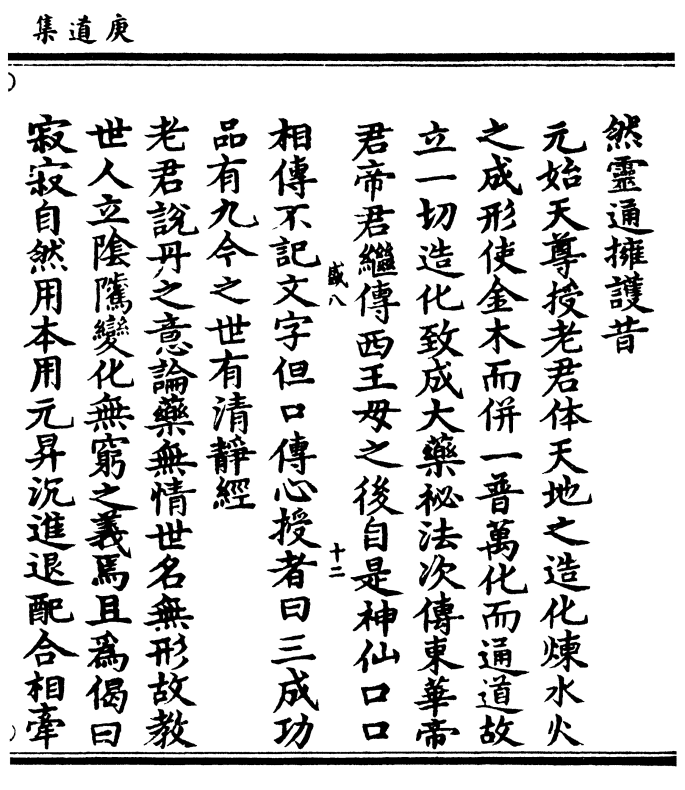 庚道集
然靈通擁護昔
元始天尊授老君体天地之造化煉水火
之成形使金木而併一普萬化而通道故
立一切造化致成大藥秘法次傳東華帝
君帝君繼傳西王母之後自是神仙口口
盛八
十二
相傳不記文字但口傳心授者曰三成功
品有九今之世有清靜經
老君說丹之意論藥無情世名無形故教
世人立陰隲變化無窮之義焉且爲偈曰
寂寂自然用本用元昇沉進退配合相牽